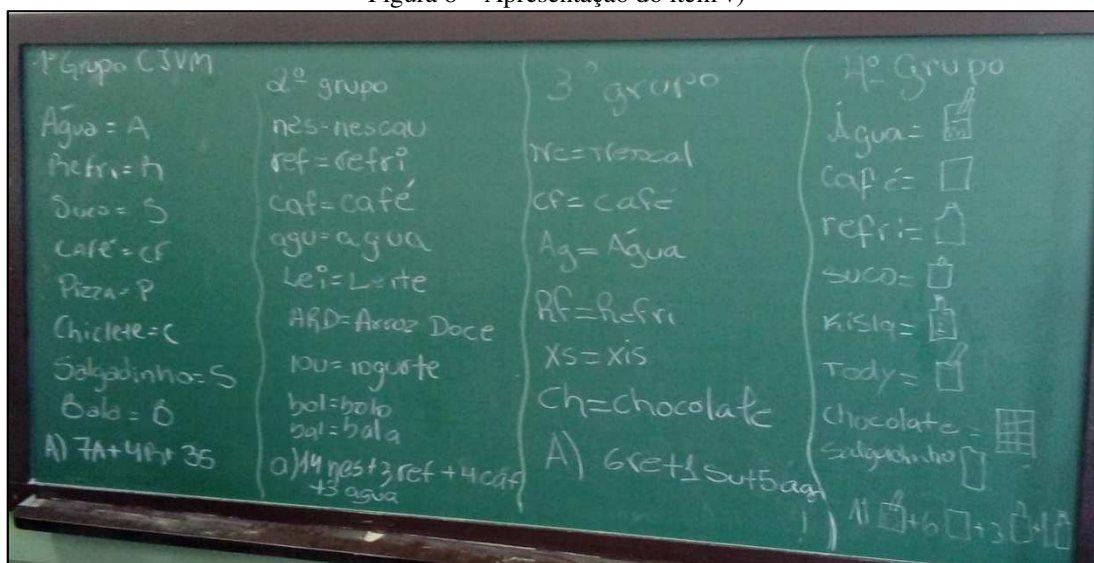 Figura 6 – Apresentação do item v)
1º Grupo CJVM
Água = A
Refri = R
Suco = S
Café = CF
Pizza = P
Chiclete = C
Salgadinho = S
Bala = B
A) 7A + 4R + 3S
2º grupo
nes = nescau
ref = refri
caf = café
agu = agua
Lei = Leite
ARD = Arroz Doce
IOU = iogurte
bol = bolo
bal = bala
a) 14 nes + 3 ref + 4 caf
+3 agua
3º grupo
Nc = Nescal
cf = café
Ag = Água
Rf = Refri
XS = XIS
Ch = chocolate
A) 6re + 1 Su + 5 ag
4º Grupo
Água =
Café =
refri =
suco =
Kisla =
Tody =
chocolate =
salgadinho
11 + 6 + 3 + 1